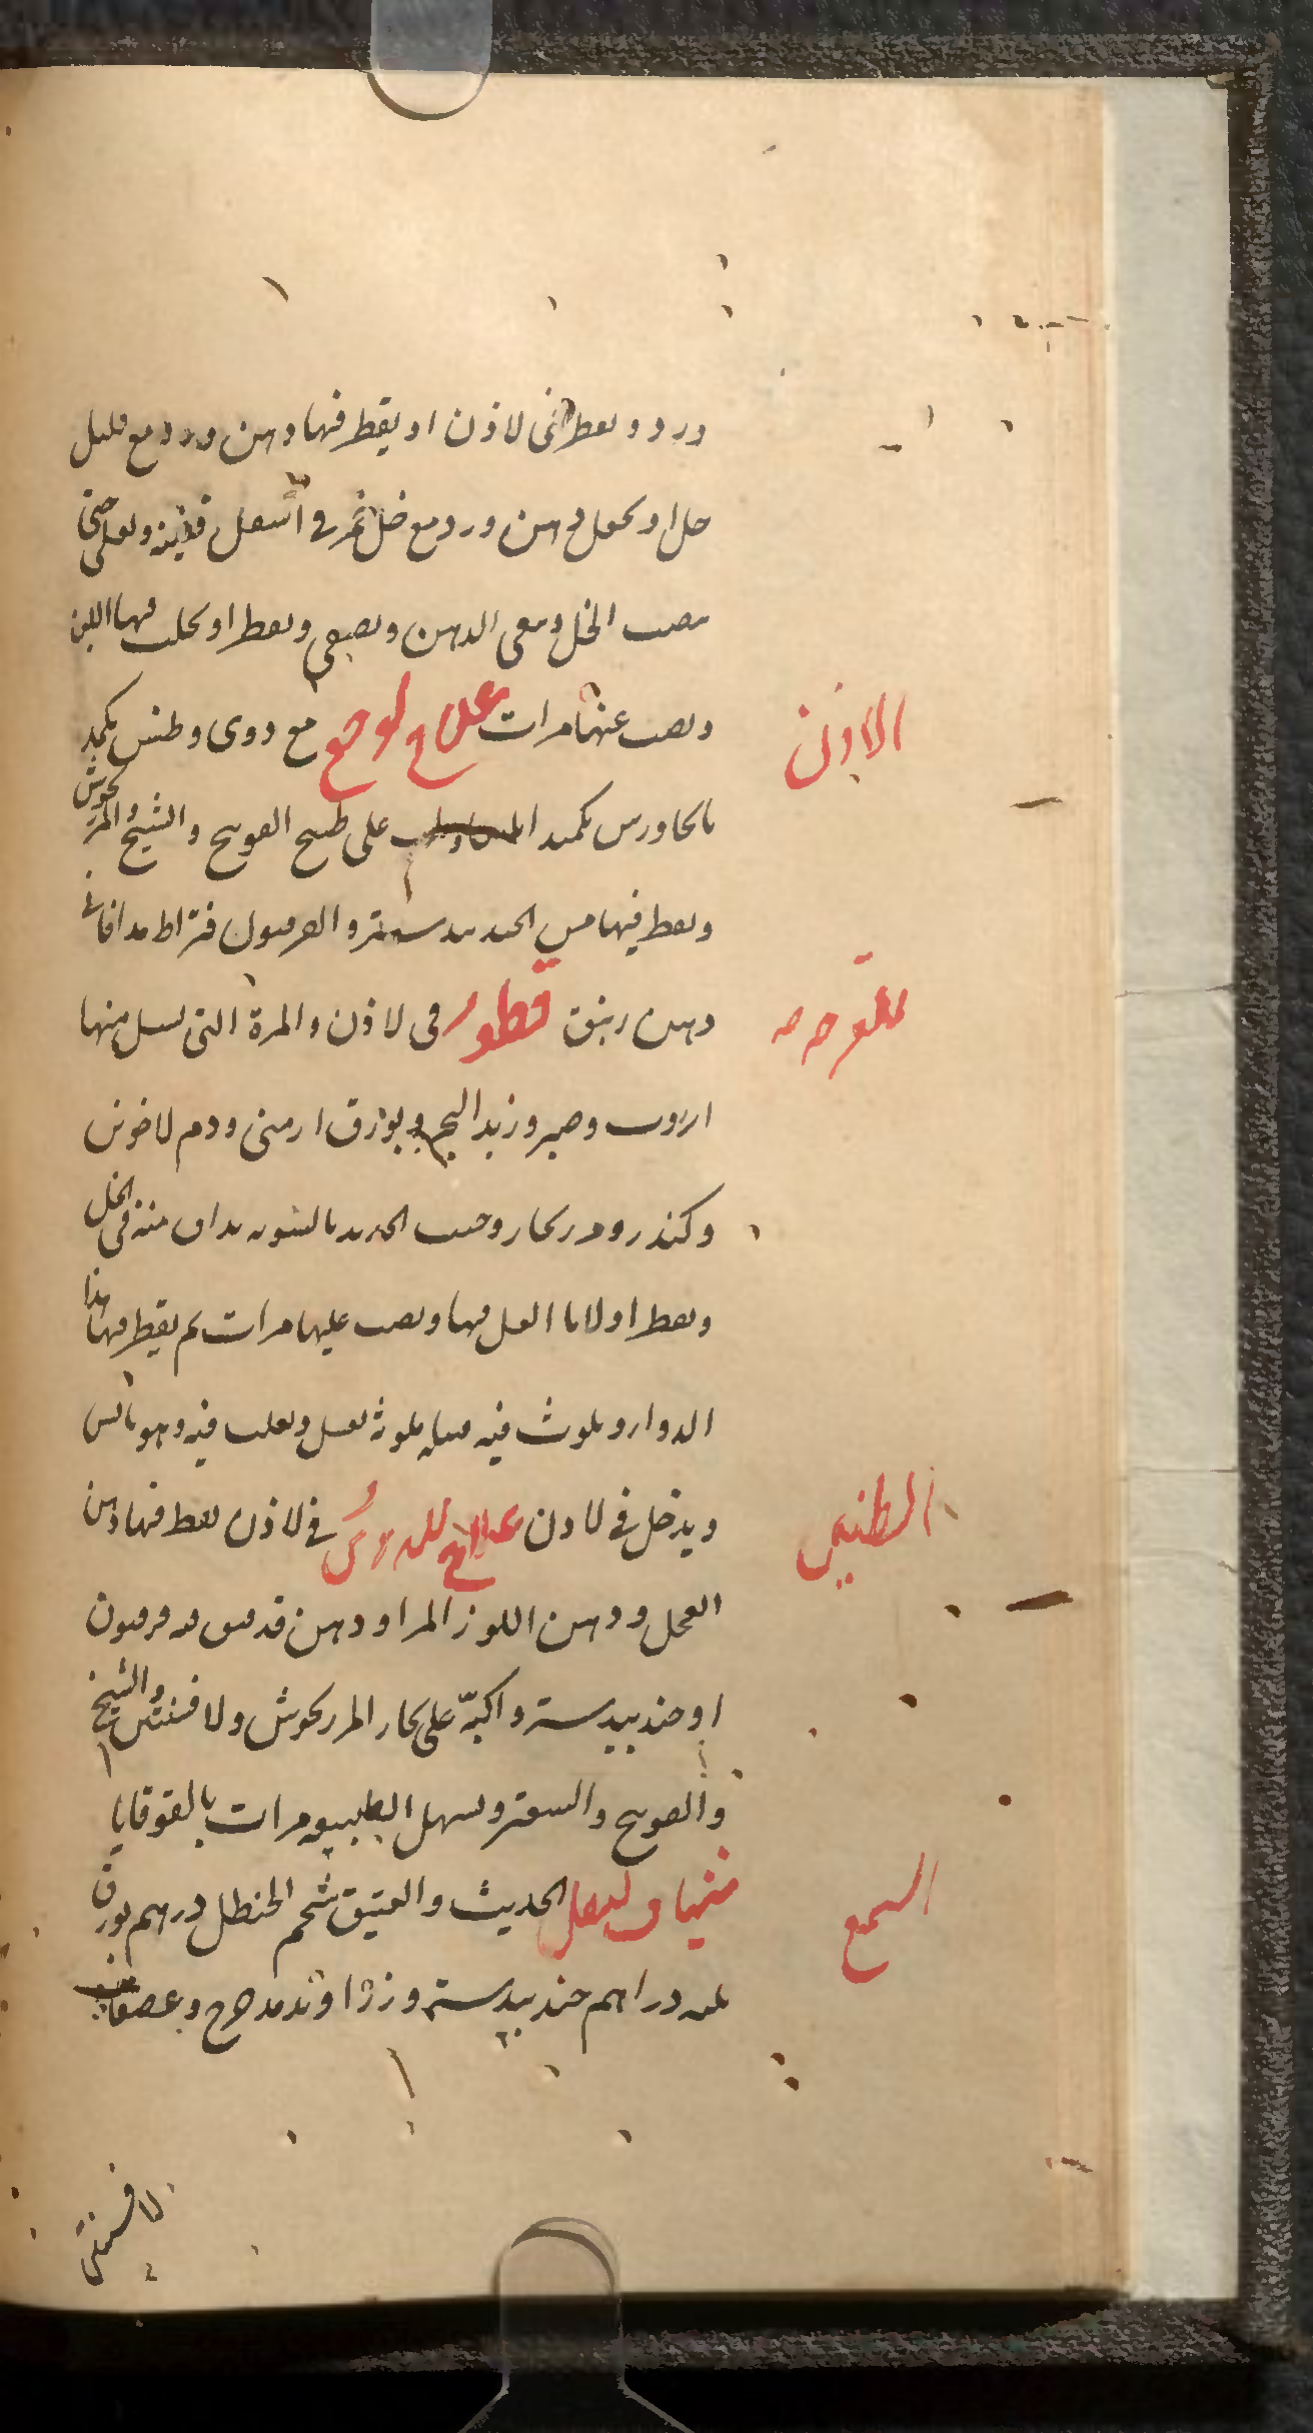 ورد ويقطر في لاذن او يقطر فيها دهن ورد مع قليل
خل او يجعل دهن ورد مع خل خمر في اسفل قنينه ويغلى حتى
الخل ويبقى الدهن ويصفى ويقطر او يحلب فيها اللبن
ويصب عنها مرات علاج لوجع مع دوى وطنين يكمد
الاذن
بالجاورس يكمد على طبيخ الفوبنج والشيح والمرزنجوش
ويقطر فيها من الجندبيدستر والفرميون قيراط مدافا في
دهن زنبق قطور في لاذن والمرة التي تسيل منها
للقرحه
انزروت وصبر وزبد البحر وبورق ارمني ودم لاخوين
وكندر وزنجار وخبث الحديد بالسويه يداف منه في الخل
ويقطر اولا ماء العسل فيها ويصب عليها مرات ثم يقطر فيها هذا
الدواء ويلوث فيه فتيله ملوثة بعسل ويقلب فيه وهو يابس
ويدخل في لاذن علاج للدوى في لاذن يقطر فيها دهن
الطنين
الفجل ودهن اللوز المر او دهن قد فتق فيه فرميون
او جندبيدستر واكبه على بخار المرزنجوش ولافسنتين والشيح
والفوبنج والسعتر ويسهل الطبيعه مرات بالقوقايا
شياف لثقل الحديث والعتيق شحم الحنطل درهم بورق
السمع
ثلثه دراهم جندبيدستر وزراوند مدحرج وعصارة
لافسنتين